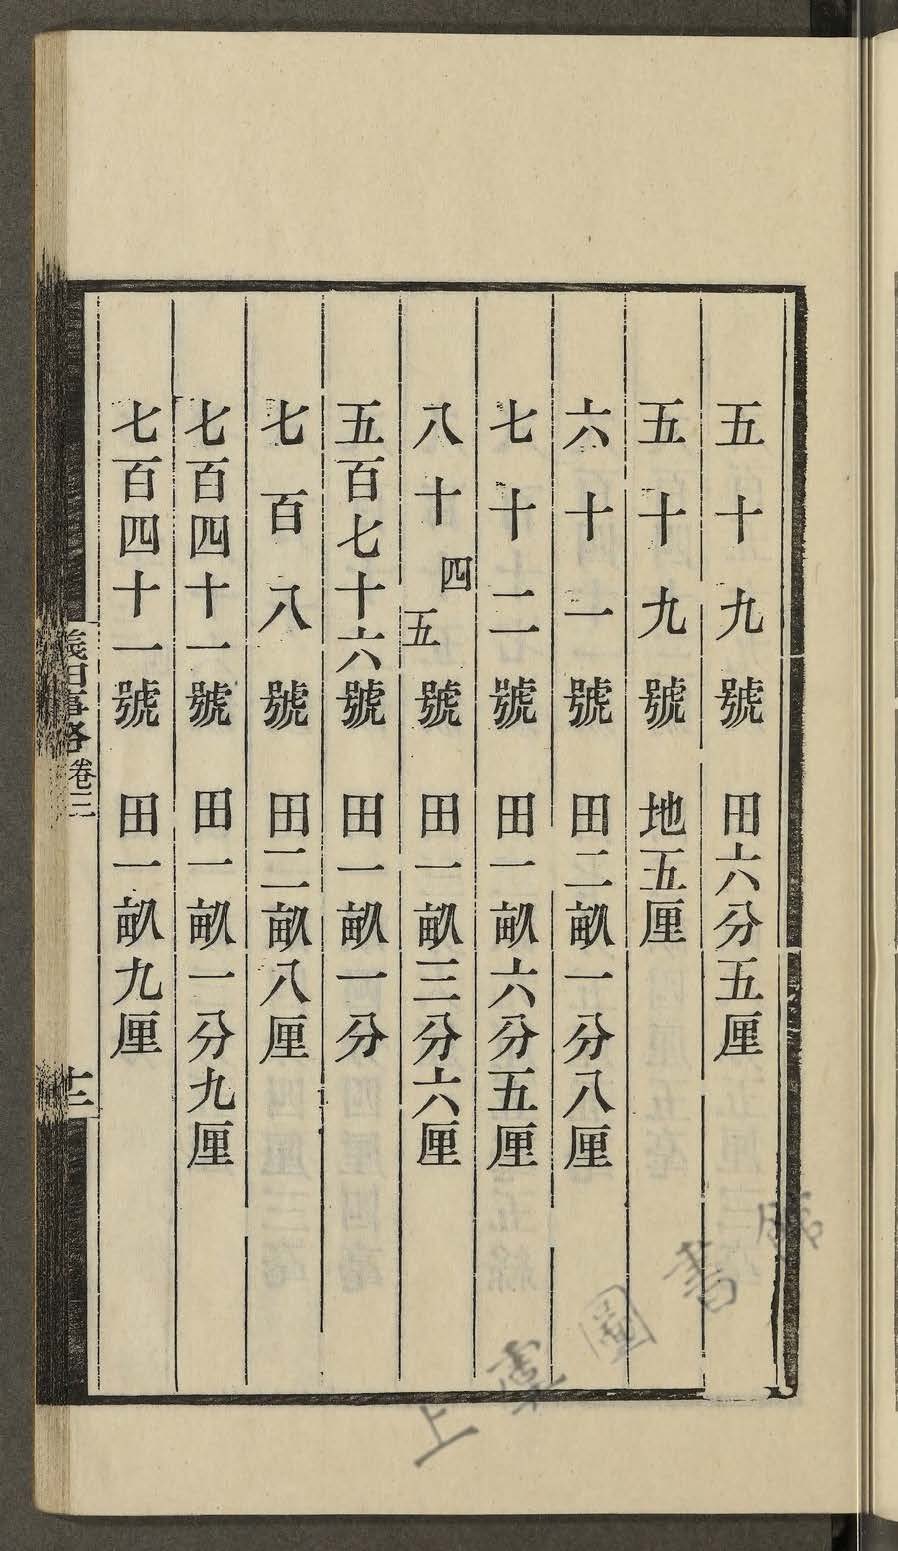 五十九號 田六分五厘
五十九號 地五厘
六十一號 田二畝一分八厘
七十二號 田一畝六分五厘
八十四五號 田一畝三分六厘
五百七十六號 田一畝一分
七百八號 田二畝八厘
七百四十一號 田一畝一分九厘
七百四十一號 田一畝九厘
義田事略 卷三
十三
上虞圖書館